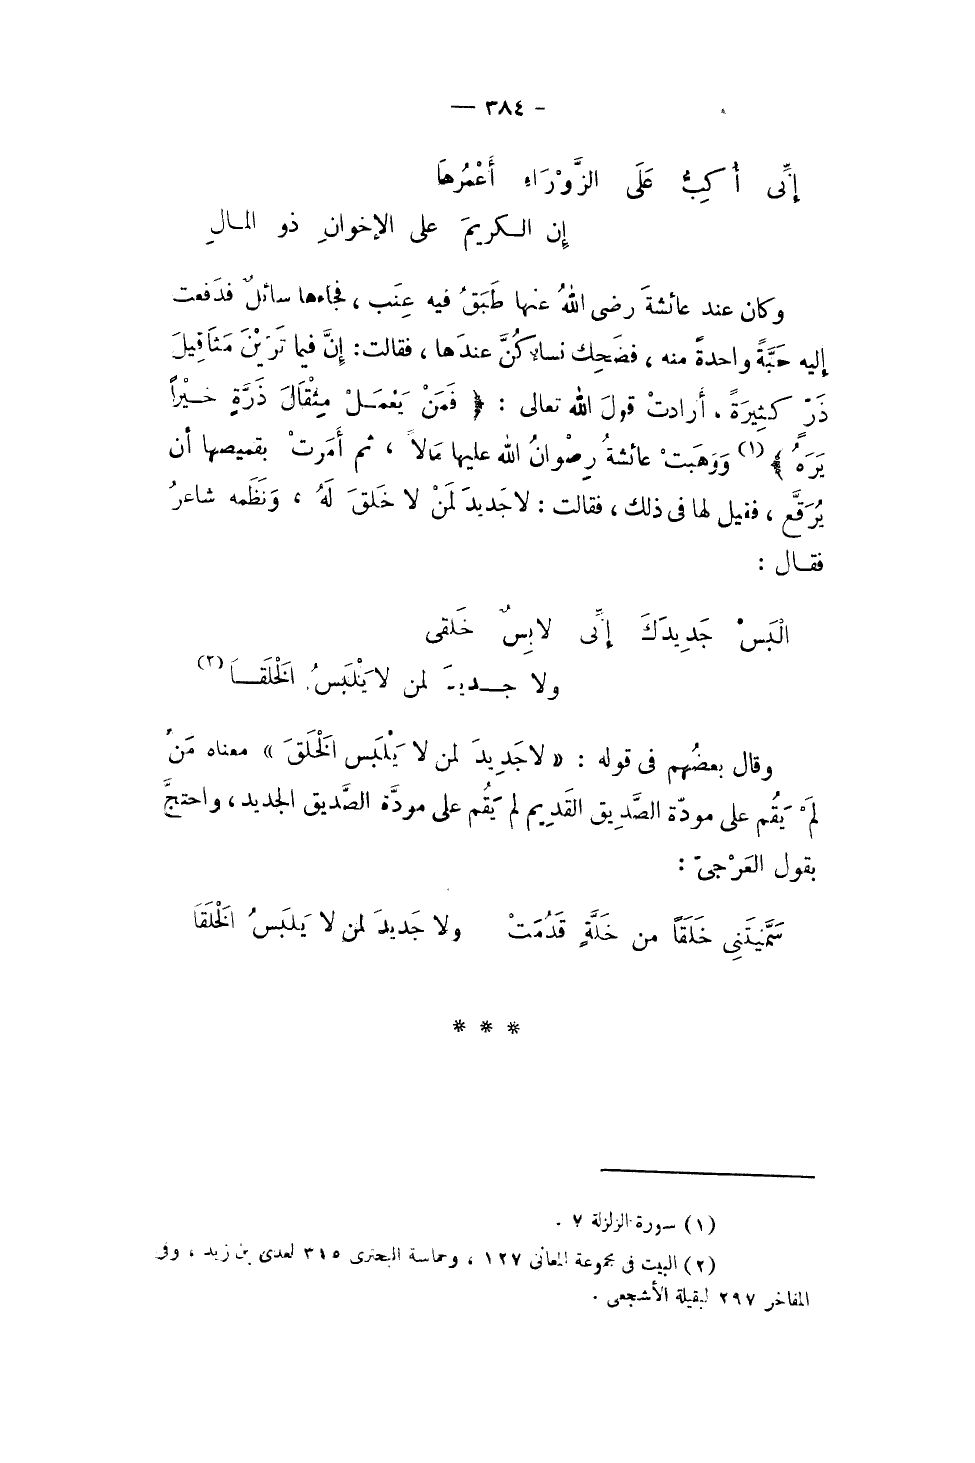 - ٣٨٤ —
إِنِّى أُكِبُّ عَلَى الزَّوْرَاءِ أَعْمُرُهَا
إِن الـكريمَ على الإخوانِ ذو المـالِ
وكان عند عائشةَ رضى اللهُ عنها طَبَقُ فيه عِنَب ، فجاءها سائلٌ فدَفعت
إليه حَبَّةً واحدةً منه ، فضَحِك نساءٌ كُنَّ عندَها ، فقالت: إِنَّ فيما تَرَيْنَ مَثاقِيلَ
ذَرّ كَثِيرَةً . أَرادتْ قولَ الله تعالى : ﴿ فَمَنْ يَعْمَـلْ مِثْقَالَ ذَرَّةٍ خـيْراً
يَرَهُ ﴾ (١) وَوَهَبتْ عائشةُ رِضْوانُ الله عليها مَالاً ، ثم أَمَرتْ بقميصها أن
يُرَقَّع ، فقيل لها فى ذلك ، فقالت : لا جَديدَ لمَنْ لا خَلقَ لَهُ ، وَنَظَمه شاعرُ
فقـال :
الْبَسْ جَدِيدَكَ إِنِّى لابِسٌ خَلَقى
ولا جـديدَ لمن لا يَلْبَسُ الْخَلَقـا (٢)
وقال بعضُهم فى قوله : « لا جَدِيدَ لمن لا يَلْبَس الْخَلَقَ » معناه مَنْ
لَمْ يَقُم على مودّة الصَّدِيق القَدِيم لم يَقُم على مودَّة الصَّديق الجديد ، واحتجَّ
بقول العَرْجىّ :
سَمَّيْتَنِى خَلَقاً من خَلَّةٍ قَدُمَتْ ولا جَديدَ لمن لا يَلبَسُ الْخَلَقَا
* * *
(١) سورة الزلزلة ٧ .
(٢) البيت فى مجموعة المعانى ١٢٧ ، وحماسة البحترى ٣١٥ لعدى بن زيد ، وفى
المفاخر ٢٩٧ لبقيلة الأشجعى .